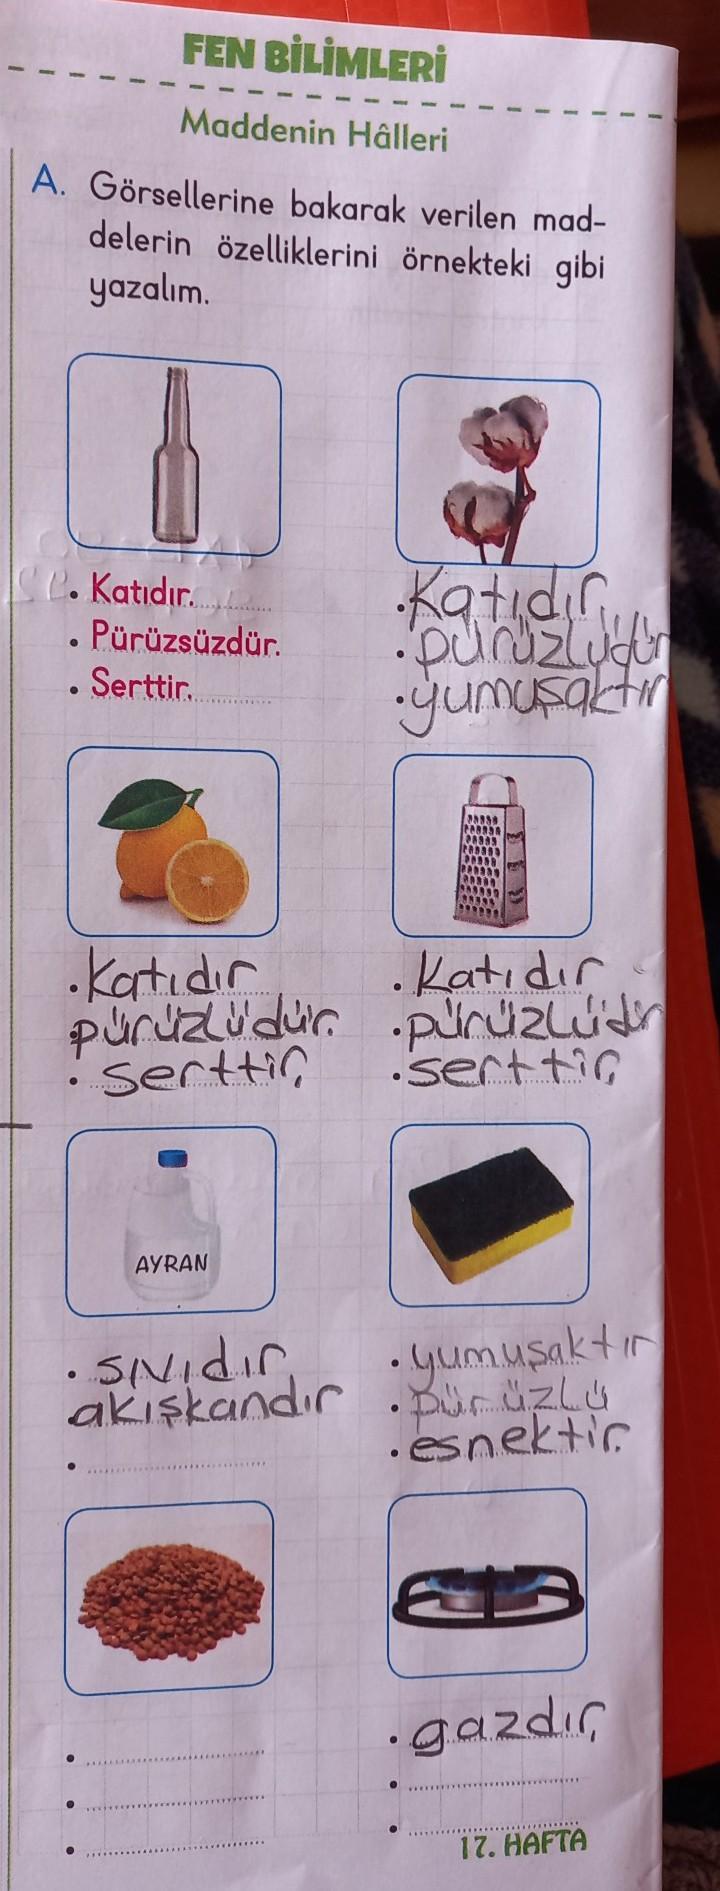 FEN BİLİMLERİ
Maddenin Hâlleri
A. Görsellerine bakarak verilen mad-
delerin özelliklerini örnekteki gibi
yazalım.
• Katıdır.
• Pürüzsüzdür.
• Serttir.
• Katıdır.
• pürüzlüdür
• yumuşaktır
• Katıdır
• pürüzlüdür.
• serttir.
• Katıdır
• pürüzlüdür
• serttir.
AYRAN
• sıvıdır
• akışkandır
•
• yumuşaktır
• pürüzlü
• esnektir.
•
•
•
• gazdır.
•
•
17. HAFTA